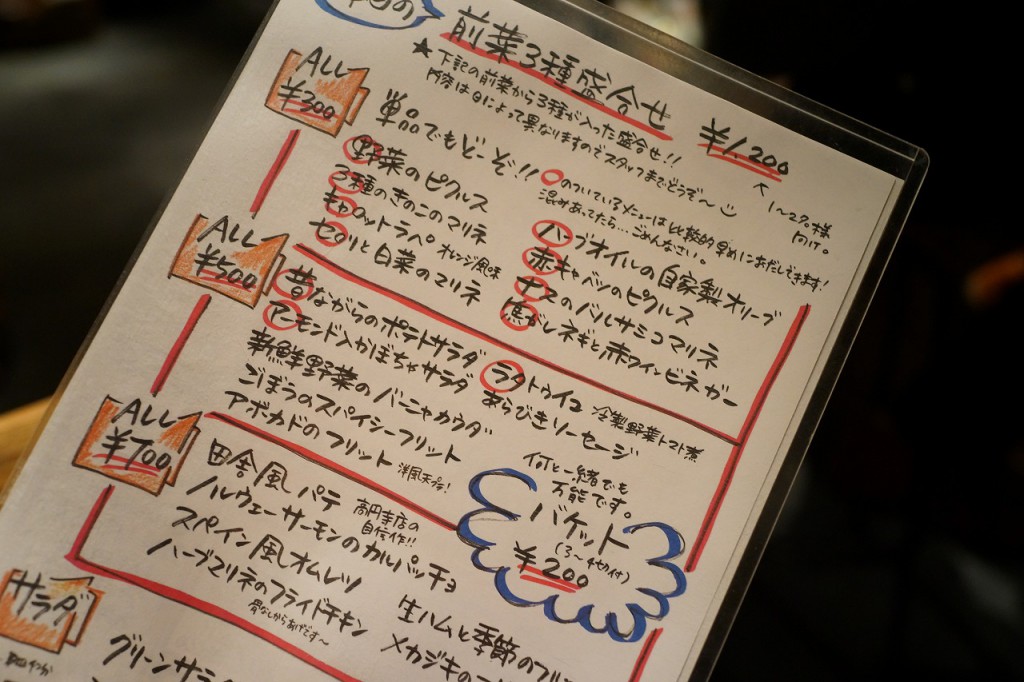 前菜3種盛合せ ¥1,200
★下記の前菜から3種が入った盛合せ!!
内容は日によって異なりますのでスタッフまでどうぞ〜
1〜2名様向け。
ALL ¥300
単品でもどーぞ!!
○のついているメニューは比較的早めにおだしできます!
混みあってたら…ごめんなさい。
野菜のピクルス
3種のきのこのマリネ
キャロットラペ オレンジ風味
セロリと白菜のマリネ
ハーブオイルの自家製オリーブ
赤キャベツのピクルス
ナスのバルサミコマリネ
焦がしネギと赤ワインビネガー
ALL ¥500
昔ながらのポテトサラダ
アーモンド入かぼちゃサラダ
新鮮野菜のバーニャカウダ
ごぼうのスパイシーフリット
アボカドのフリット 洋風天ぷら!
ラタトゥイユ 冷製野菜トマト煮
あらびきソーセージ
何と一緒でも
万能です。
バケット
(3〜4切付)
¥200
ALL ¥700
田舎風パテ 高円寺店の自信作!!
ノルウェーサーモンのカルパッチョ
スペイン風オムレツ
ハーブマリネのフライドチキン
骨なしからあげです〜
生ハムと季節のフル
メカジキの
サラダ
グリーンサラ